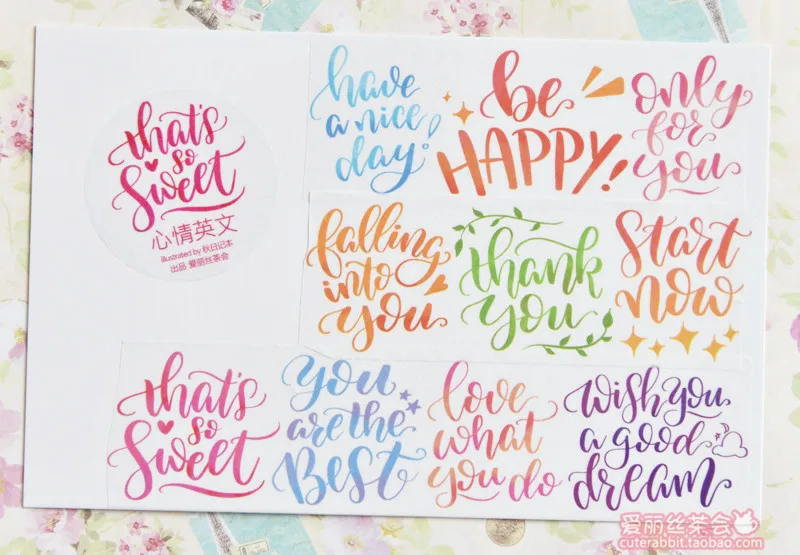 that's
so
Sweet
心情英文
illustrated by 秋日记本
出品 爱丽丝茶会
have
a nice
day!
be
HAPPY!
only
for
you
falling
into
you
thank
you
Start
now
that's
so
Sweet
You
are the
Best
love
what
you do
Wish you
a good
dream
爱丽丝茶会
cuterabbit.taobao.com